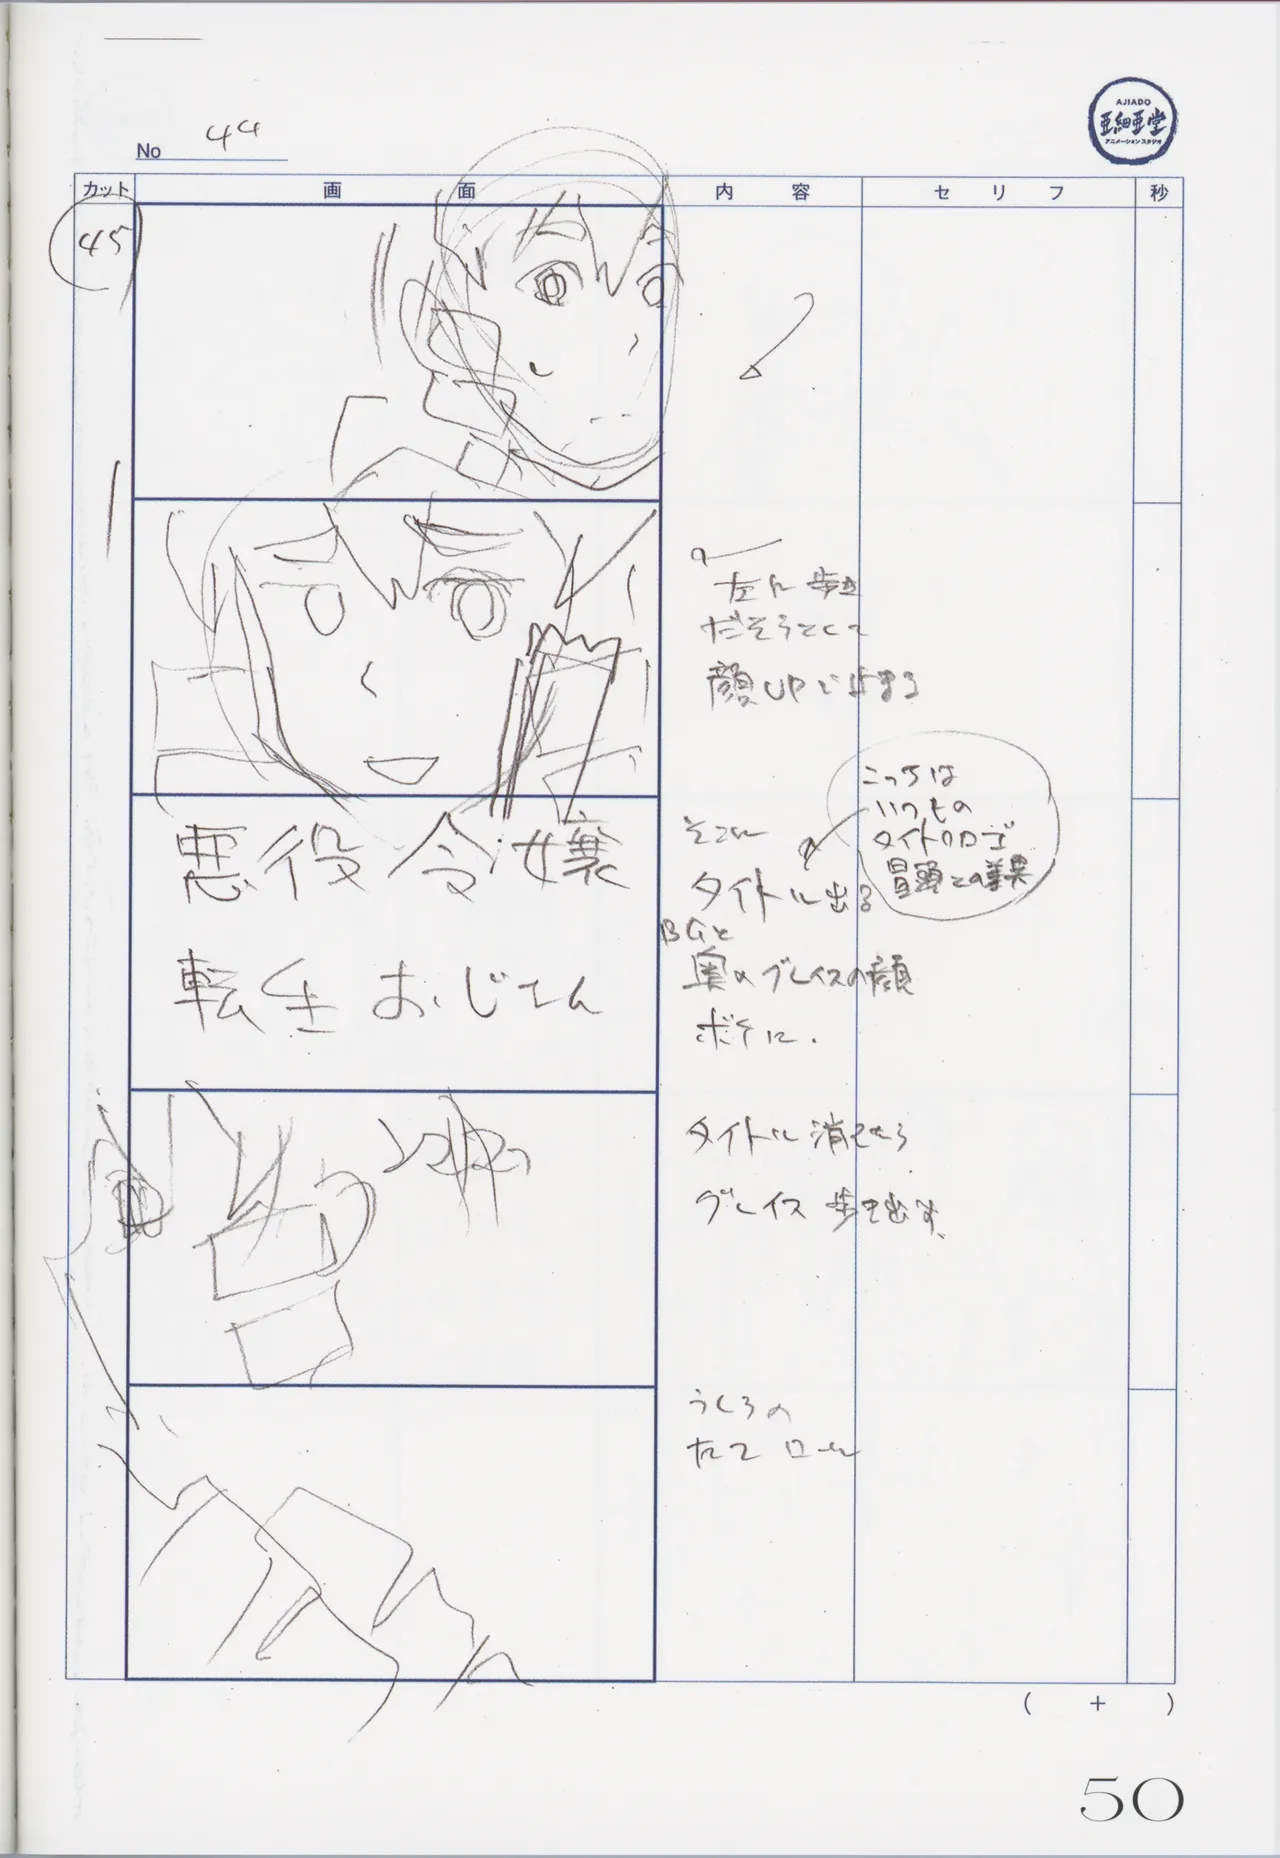 No 44
AJIADO
亜細亜堂
アニメーションスタジオ
カット 画面 内容 セリフ 秒
45
左に歩き
だそうとして
顔UPで止まる
悪役令嬢
転生おじさん
そこに
タイトル出る
BGと
奥のグレイスの顔
ボケに.
こっちは
いつもの
タイトルロゴ
冒頭との差異
タイトル消えたら
グレイス歩き出す、
うしろの
たてロール
( + )
50